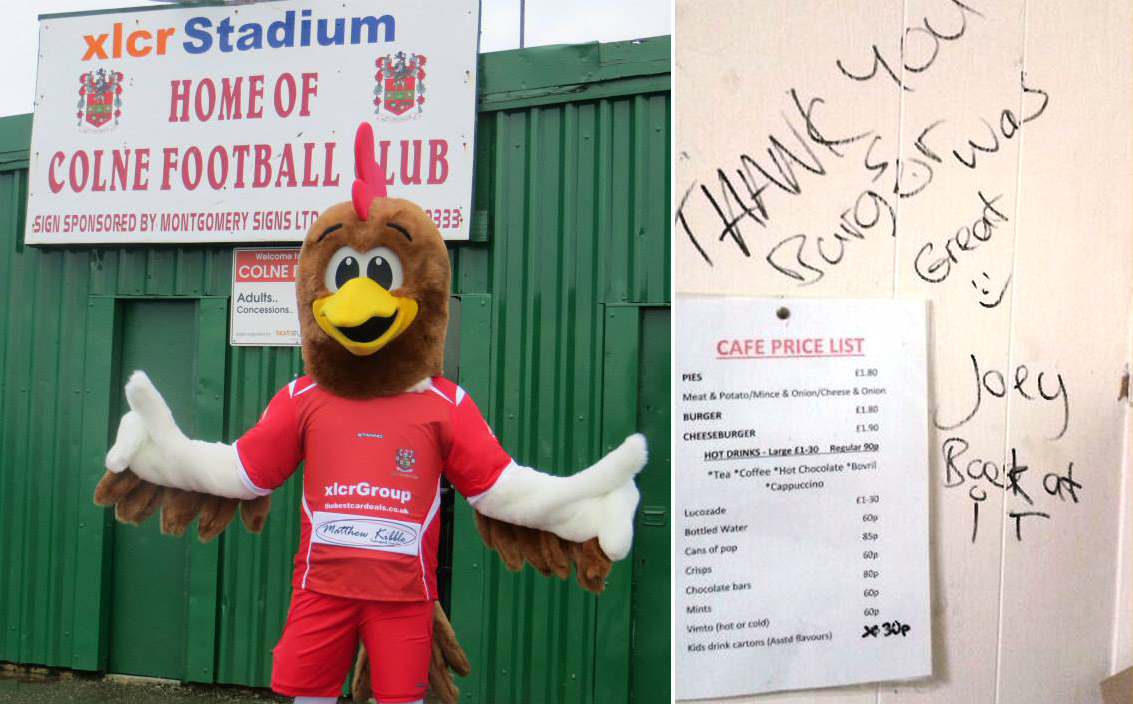 xlcr Stadium
HOME OF
COLNE FOOTBALL LUB
SIGN SPONSORED BY MONTGOMERY SIGNS LTD 0333
Welcome
COLNE
Adults..
Concessions..
STANNO
xlcrGroup
thebestcardeals.co.uk
Matthew Kibble
THANK YOU
Burgor was
Great
Joey
Back at
IT
CAFE PRICE LIST
PIES £1.80
Meat & Potato/Mince & Onion/Cheese & Onion
BURGER £1.80
CHEESEBURGER £1.90
HOT DRINKS - Large £1-30 Regular 90p
*Tea *Coffee *Hot Chocolate *Bovril
*Cappuccino
Lucozade £1-30
Bottled Water 60p
Cans of pop 85p
Crisps 60p
Chocolate bars 80p
Mints 60p
Vimto (hot or cold) 60p
Kids drink cartons (Asstd flavours) 30p